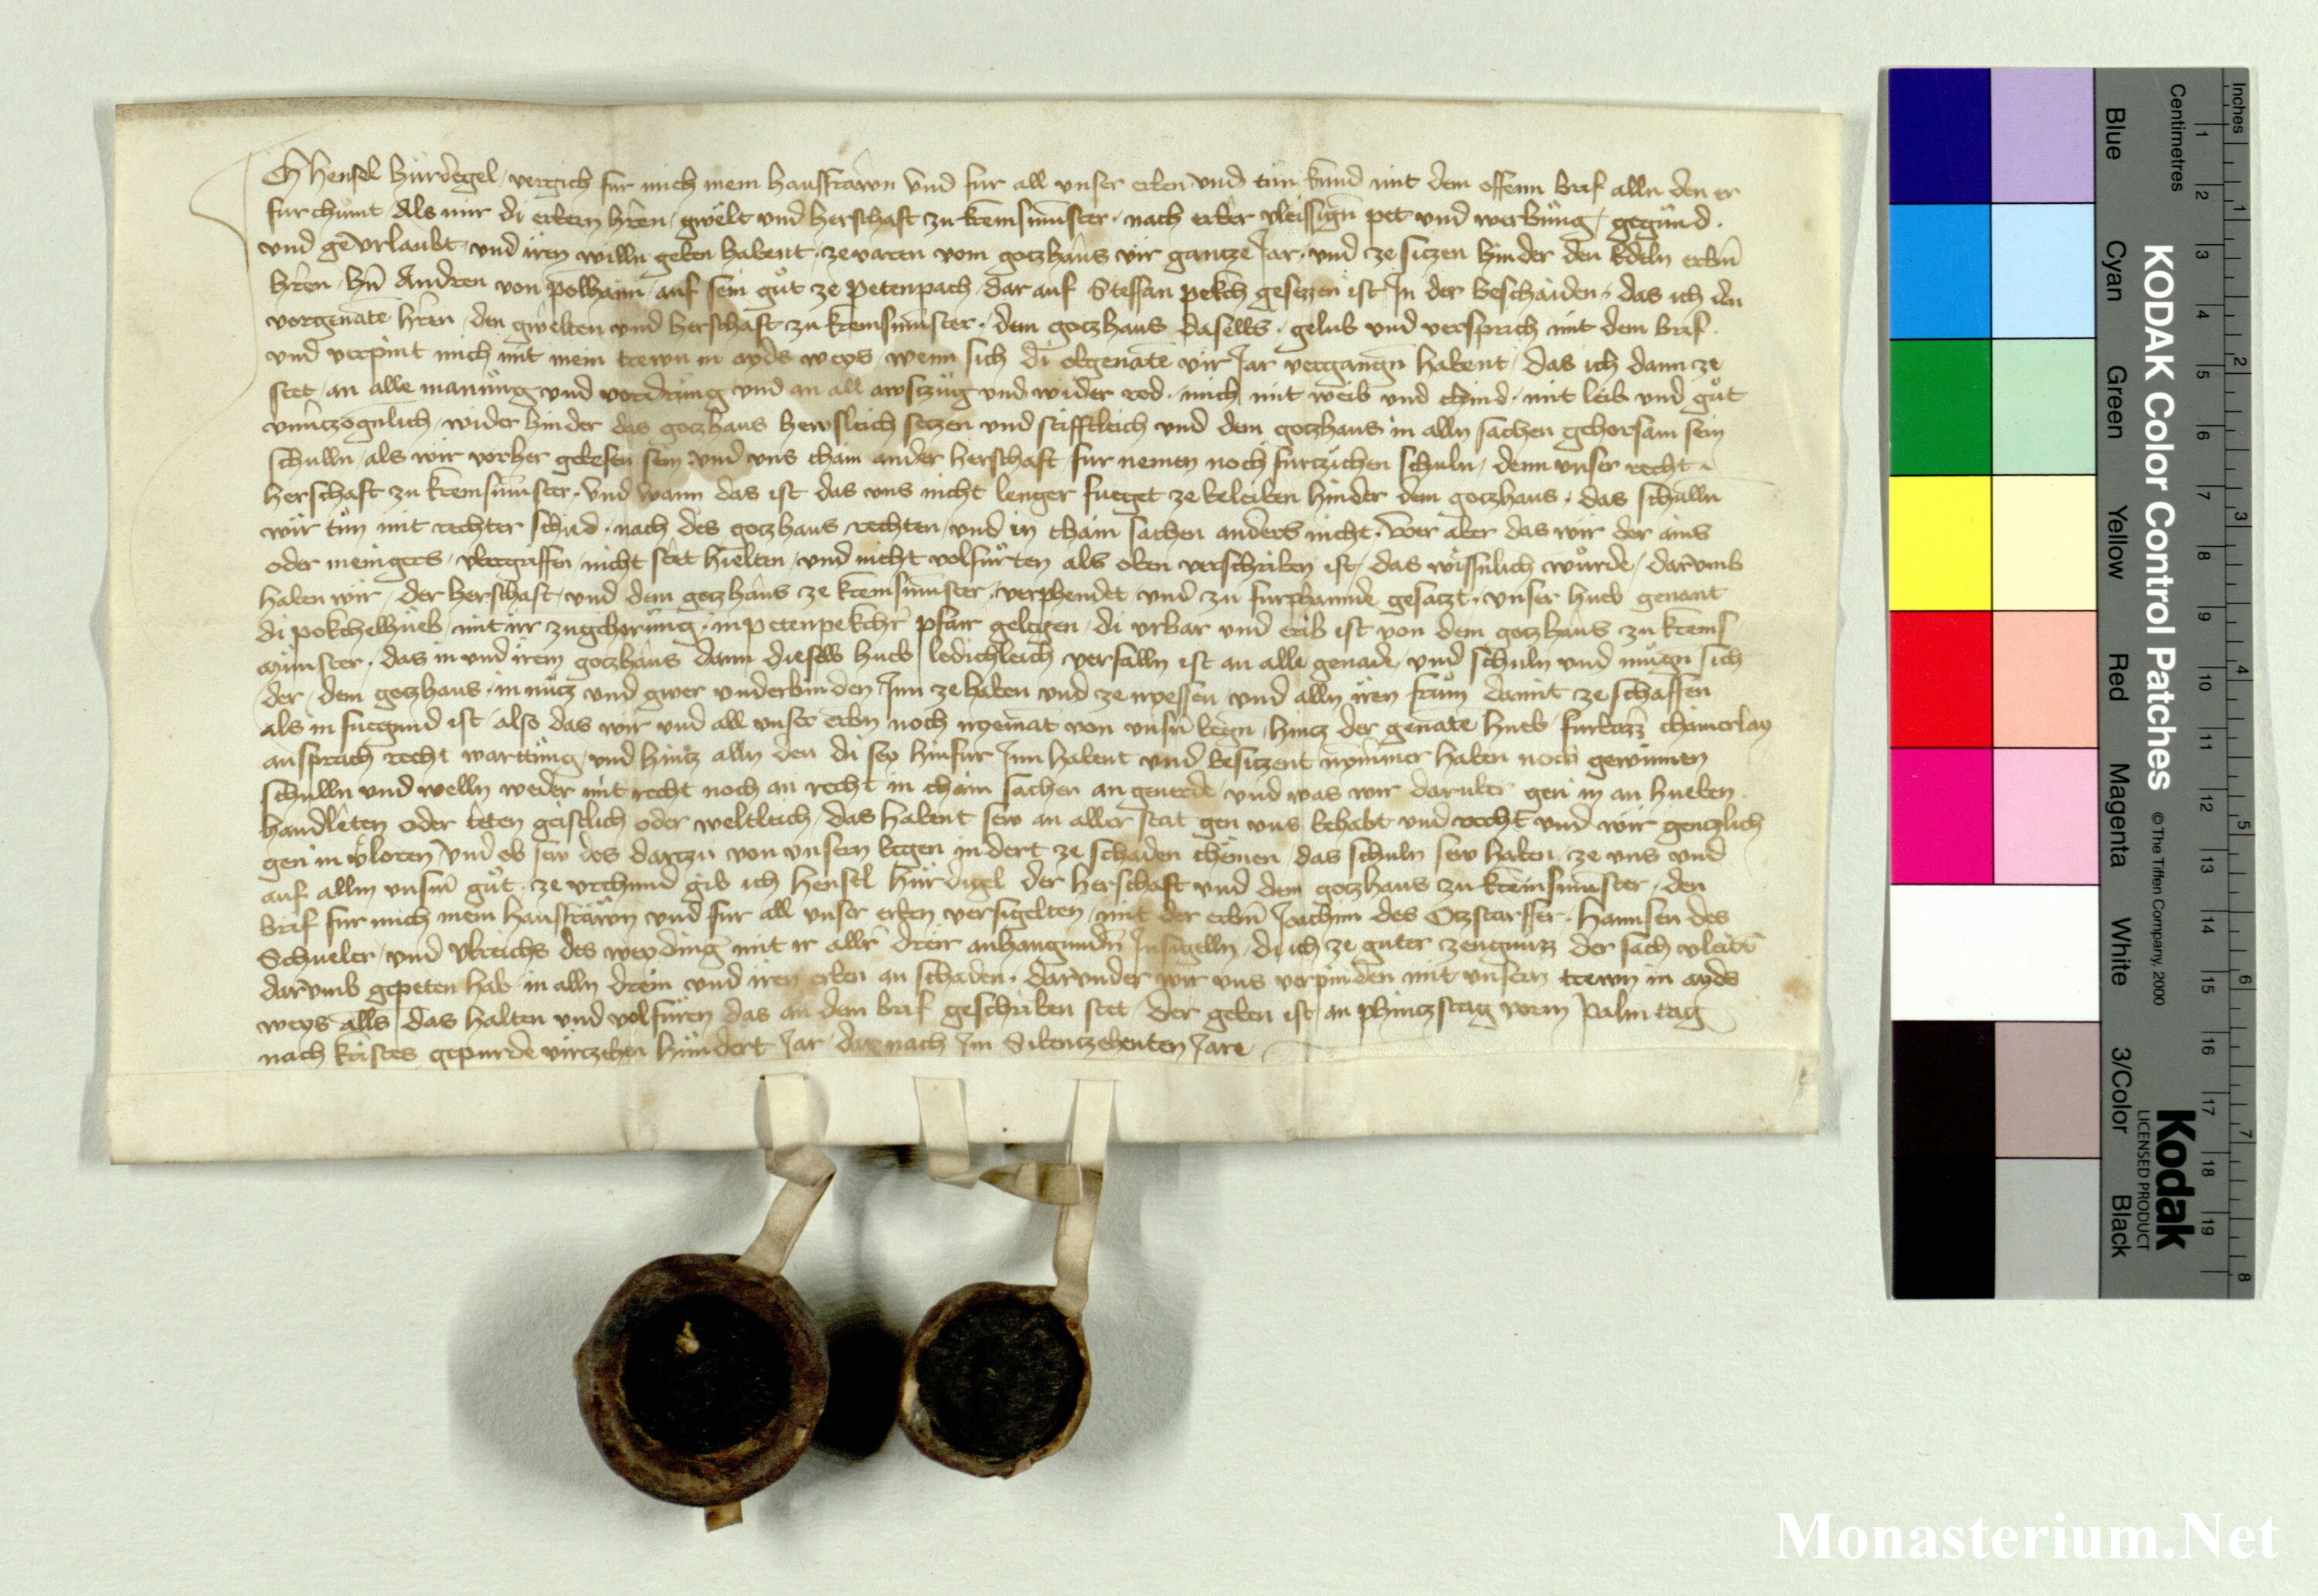 Ich Hensel Hürdegel vergich fur mich mein hausfrawn vnd fur all vnser erben vnd tün kund mit dem offenn brif alln den er
fur chümt Als mir di erbern hren gwelt vnd herschaft zu kremsmunster nach erber vleissign pet vnd werbung gegünd
vnd gevrlaubt vnd iren willn geben habent ze varen vom gotzhaus vir gantze Jar vnd ze sitzen hinder den Edeln erbn
hren hn Andren von polhaim auf sein güt ze petenpach dar auf Steffan pekch gesezzen ist In der beschaiden das ich den
vorgenate hren den gwelten vnd herschaft zu kremsmunster dem gotzhaus daselbs gelub vnd versprich mit dem brif
vnd verpint mich mit mein trewn in ayds weys wenn sich di obgenate vir Jar vergangn habent das ich dann ze
stet an alle manüng vnd vordrüng vnd an all awsczüg vnd wider red mich mit weib vnd chind mit leib vnd güt
vnuerczogenlich wider hinder das gotzhaus hewsleich setzen vnd stifftleich vnd dem gotzhaus in alln sachen gehorsam sein
schulln als wir vorher gebesen sein vnd vns chain ander herschaft fur nemen noch furczichen schuln denn vnser recht
herschaft zu kremsmunster Vnd wann das ist das vns nicht lenger fueget ze beleiben hinder dem gotzhaus das schulln
wir tün mit rechter schid nach des gotzhaus rechten vnd in chain sachen anders nicht Wer aber das wir der ains
oder meingers vbergriffen nicht stet hielten vnd nicht volfürten als oben verschriben ist das wissnlich würde darvmb
haben wir der herschaft vnd dem gotzhaus ze kremsmunster verphendet vnd zu furphannde gesatzt vnser hueb genant
di pokchelhueb mit irr zugehorüng in petenpekchr pfarr gelegen di vrbar vnd erib ist von dem gotzhaus zu krems
münster das in vnd irem gotzhaus dann dieselb hueb ledichleich verfalln ist an alle genade vnd schuln vnd mügn sich
der dem gotzhaus in nütz vnd gwer vnderbinden Inn ze haben vnd ze nyessen vnd alln iren früm damit ze schaffen
als in fuegund ist also das wir vnd all vnser erbn noch nyemat von vnsrn wegn hincz der genate hueb furbazz chainerlay
ansprach recht warttüng vnd hintz alln den di sey hinfur Inn habent vnd besitzent nymmer haben noch gewinnen
schulln vnd welln weder mit recht noch an recht in chain sachen an geuerde vnd was wir daruber gen in an hueben
handleten oder teten geistlich oder weltleich das habent sew an aller stat gen vns behabt vnd recht vnd wir genczlich
gen in vloren vnd ob sew des darczu von vnsern wegen indert ze schaden chömen das schuln sew haben ze vns vnd
auf allm vnserm güt ze vrchund gib ich Hensel Hürdigel der herschaft vnd dem gotzhaus zu kremsmunster den
brif fur mich mein hausfrawn vnd fur all vnser erben versigelten mit der erbn Joachim des Otzstarffer Hannsen des
Schueler vnd Vlreichs des weyding mit ir allr dreir anhangunden Insigelln di ich ze guter zeugnüzz der sach vleizz
darvmb gepeten hab in alln drein vnd iren erben an schaden darunder wir vns verpinden mit vnsern trewn in ayds
weys alls das halten vnd volfüren das an dem brif geschriben stet der geben ist an phincztag vorm Palm tag
nach kristes gepurde virczehen hündert Jar darnach Im Sibenczehenten Jare
KODAK Color Control Patches
© The Tiffen Company, 2000
Kodak
LICENSED PRODUCT
Blue Cyan Green Yellow Red Magenta White 3/Color Black
Centimetres 1 2 3 4 5 6 7 8 9 10 11 12 13 14 15 16 17 18 19
Inches 1 2 3 4 5 6 7 8
Monasterium.Net